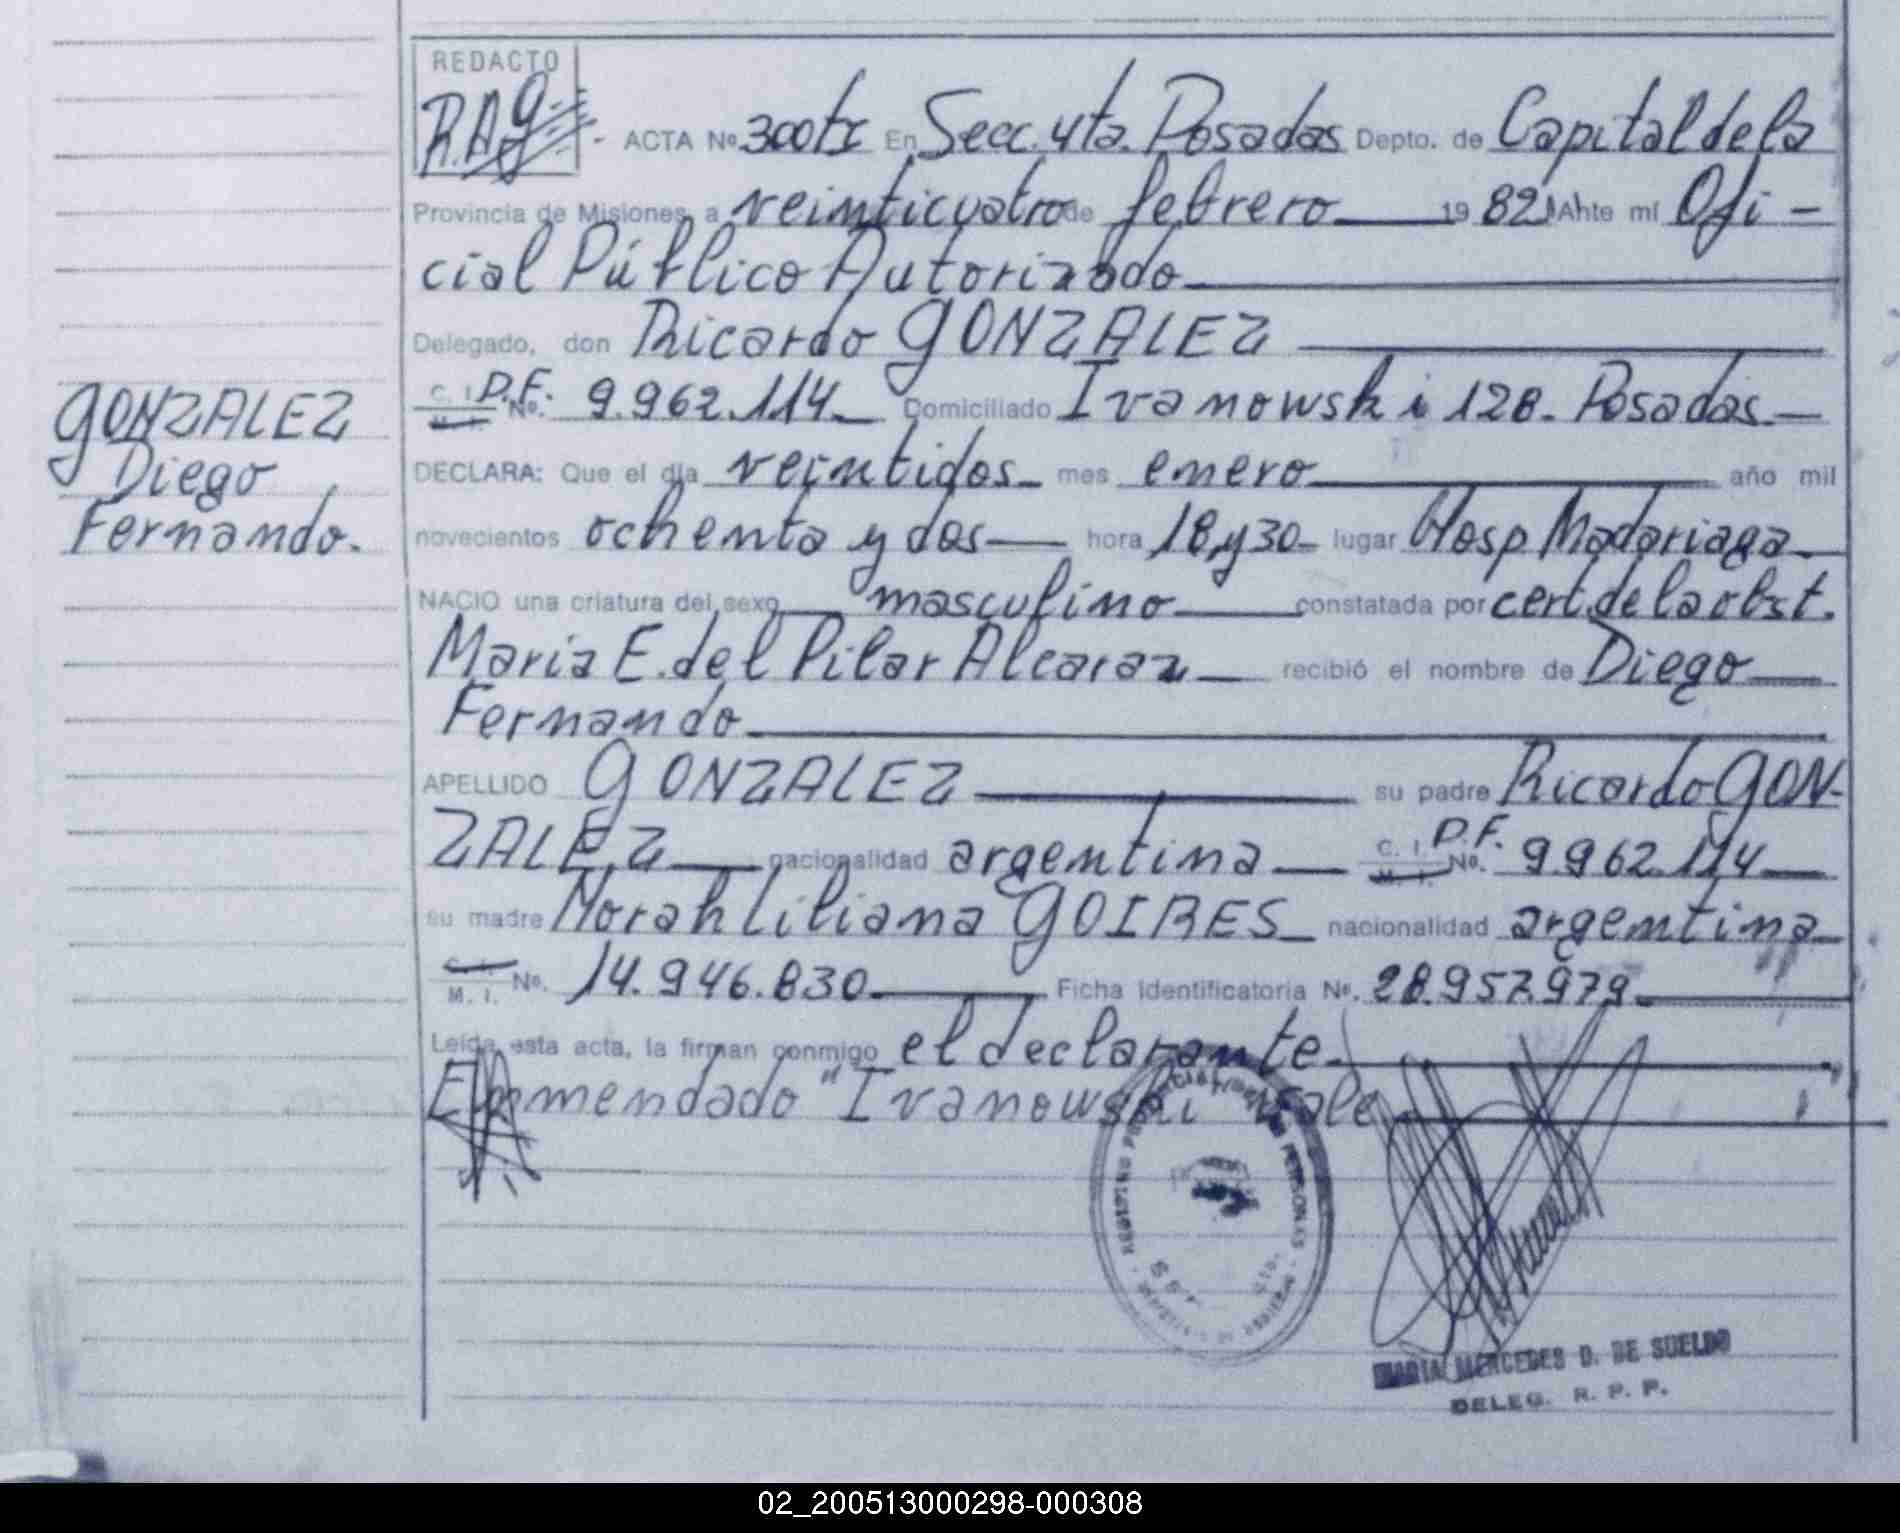 REDACTO
R.A.G
ACTA No. 300 tI En Secc. 4ta. Posadas Depto. de Capital de la
Provincia de Misiones, a veinticuatro de febrero 1982 Ante mí Ofi-
cial Público Autorizado
Delegado, don Ricardo GONZALEZ
C. I. D.F. M. I. No. 9.962.114 Domiciliado Ivanowski 128. Posadas
GONZALEZ
Diego
Fernando.
DECLARA: Que el día veintidos mes enero año mil
novecientos ochenta y dos hora 18 y 30 lugar Hosp. Madariaga
NACIO una criatura del sexo masculino constatada por cert. de la obst.
Maria E. del Pilar Alcaraz recibió el nombre de Diego
Fernando
APELLIDO GONZALEZ su padre Ricardo GON-
ZALEZ nacionalidad argentina C. I. D.F. M. I. No. 9.962.114
su madre Norah Liliana GOIRES nacionalidad argentina
C. I. M. I. No. 14.946.830 Ficha Identificatoria No. 28.957.979
Leída esta acta, la firman conmigo el declarante
Enmendado "Ivanowski" Vale
REGISTRO PROVINCIAL DE LAS PERSONAS
MARIA MERCEDES D. DE SUELDO
DELEG. R. P. P.
02_200513000298-000308